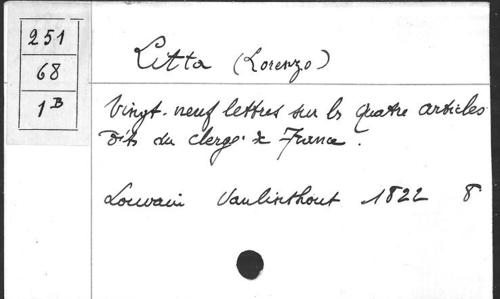 251
68
1B
Litta (Lorenzo)
Vingt-neuf lettres sur les Quatre articles
dits du clergé de France.
Louvain Vanlinthout 1822 8